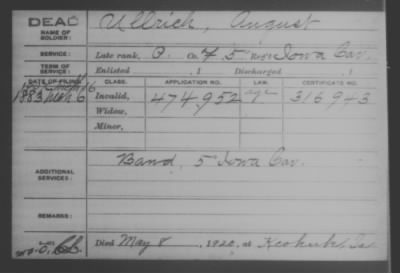 DEAD Ullrich, August
NAME OF SOLDIER:
SERVICE: Late rank, P. Co. F 5" Reg't Iowa Cav.
TERM OF SERVICE: Enlisted , 1 Discharged , 1
DATE OF FILING. CLASS. APPLICATION NO. LAW. CERTIFICATE NO.
1883 Mch 6 Invalid, 474.952 316943
Widow,
Minor,
ADDITIONAL SERVICES: Band, 5" Iowa Cav.
REMARKS:
Died May 8, 1920, at Keokuk, Ia.